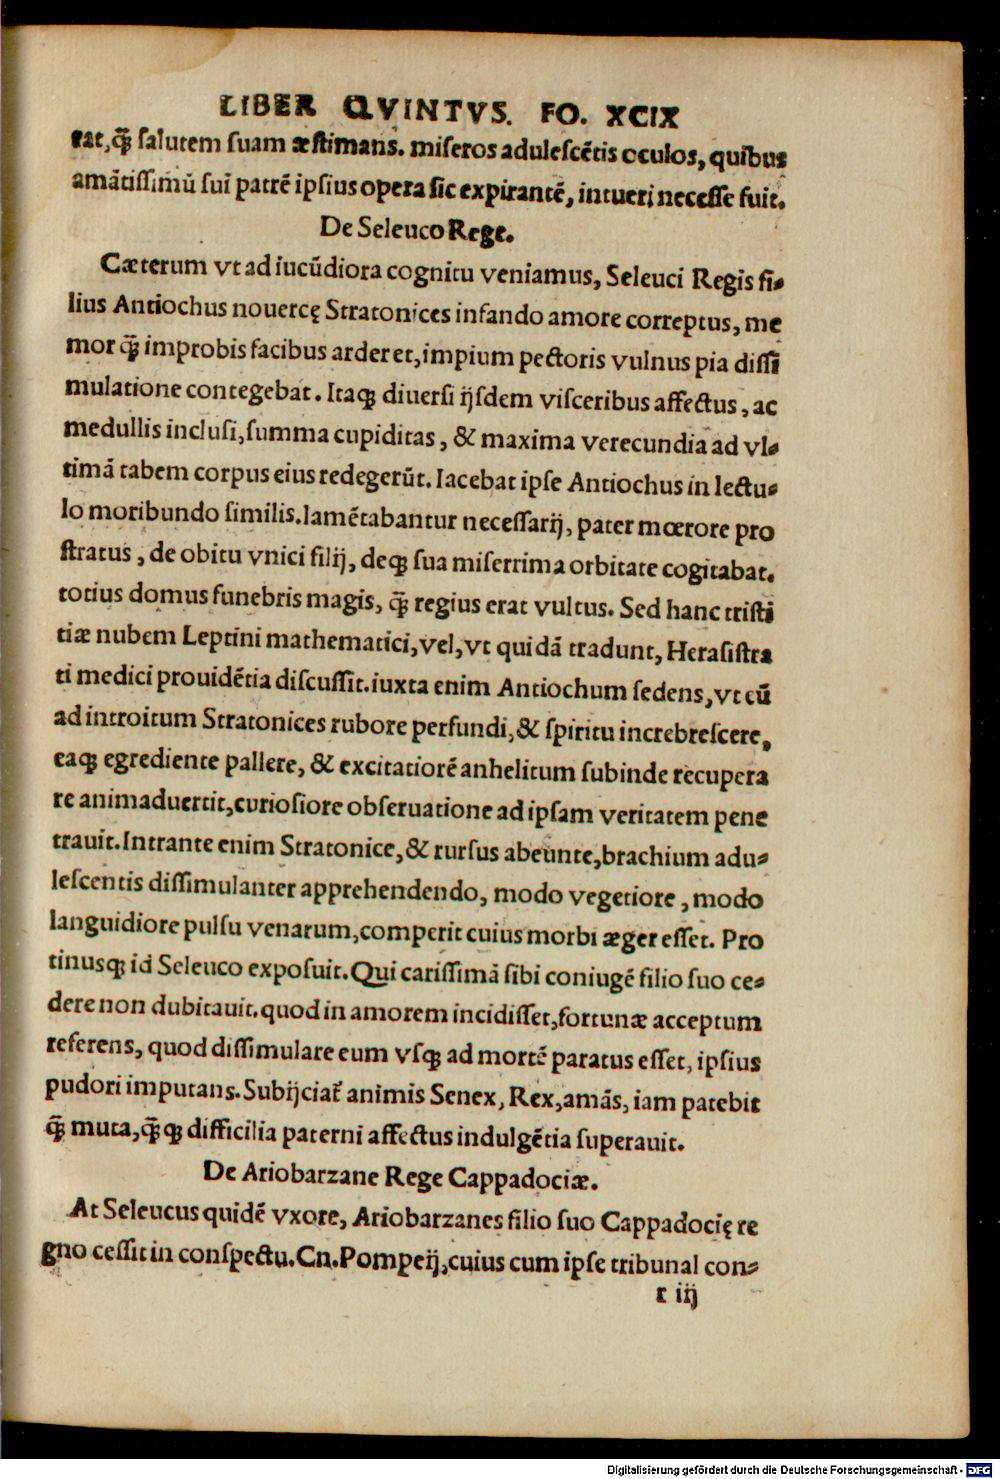 LIBER QVINTVS. FO. XCIX
rat, q̃ salutem suam æstimans. miseros adulescẽtis oculos, quibus
amãtissimũ sui patrẽ ipsius opera sic expirantẽ, intueri necesse fuit.
De Seleuco Rege.
Cæterum vt ad iucũdiora cognitu veniamus, Seleuci Regis fi-
lius Antiochus nouercę Stratonices infando amore correptus, me
mor q̃ improbis facibus arderet, impium pectoris vulnus pia dissi
mulatione contegebat. Itaqꝫ diuersi ijsdem visceribus affectus, ac
medullis inclusi, summa cupiditas, & maxima verecundia ad vl-
timã tabem corpus eius redegerũt. Iacebat ipse Antiochus in lectu-
lo moribundo similis. lamẽtabantur necessarij, pater mœrore pro
stratus, de obitu vnici filij, deqꝫ sua miserrima orbitate cogitabat.
totius domus funebris magis, q̃ regius erat vultus. Sed hanc tristi
tiæ nubem Leptini mathematici, vel, vt quidã tradunt, Herasistra
ti medici prouidẽtia discussit. iuxta enim Antiochum sedens, vt cũ
ad introitum Stratonices rubore perfundi, & spiritu increbrescere,
eaqꝫ egrediente pallere, & excitatiorẽ anhelitum subinde recupera
re animaduertit, curiosiore obseruatione ad ipsam veritatem pene
trauit. Intrante enim Stratonice, & rursus abeunte, brachium adu-
lescentis dissimulanter apprehendendo, modo vegetiore, modo
languidiore pulsu venarum, comperit cuius morbi æger esset. Pro
tinusqꝫ id Seleuco exposuit. Qui carissimã sibi coniugẽ filio suo ce-
dere non dubitauit. quod in amorem incidisset, fortunæ acceptum
referens, quod dissimulare eum vsqꝫ ad mortẽ paratus esset, ipsius
pudori imputans. Subijciat̃ animis Senex, Rex, amãs, iam patebit
q̃ muta, q̃qꝫ difficilia paterni affectus indulgẽtia superauit.
De Ariobarzane Rege Cappadociæ.
At Seleucus quidẽ vxore, Ariobarzanes filio suo Cappadocię re
gno cessit in conspectu. Cn. Pompeij, cuius cum ipse tribunal con-
r iij
Digitalisierung gefördert durch die Deutsche Forschungsgemeinschaft - DFG